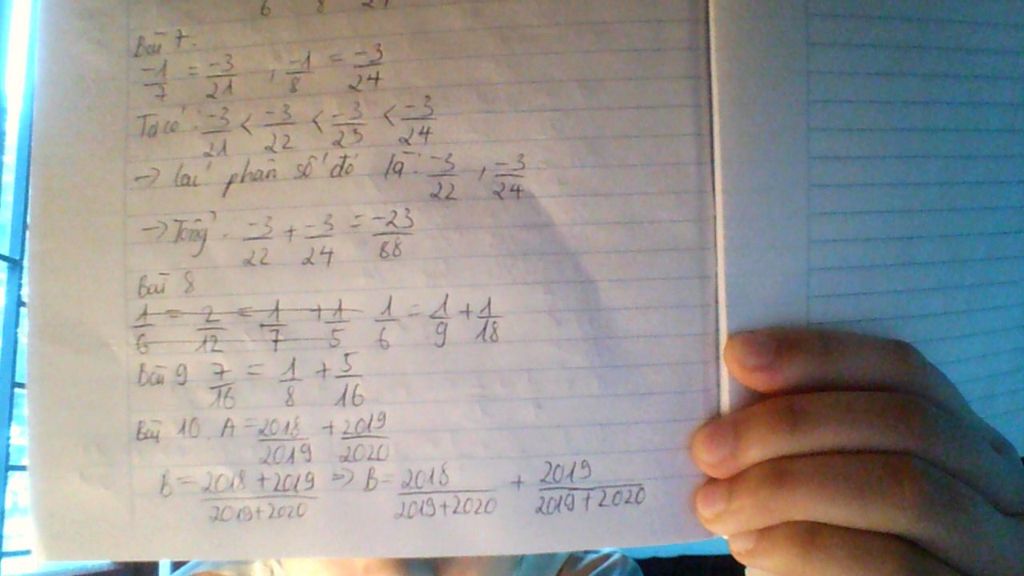 6 8 24
Bài 7.
-1/7 = -3/21 , -1/8 = -3/24
Ta có: -3/21 < -3/22 < -3/23 < -3/24
→ Các phân số đó là: -3/22 , -3/24
→ Tổng: -3/22 + -3/24 = -23/88
Bài 8
1/6 = 2/12 = 1/7 + 1/5 1/6 = 1/9 + 1/18
Bài 9 7/16 = 1/8 + 5/16
Bài 10. A = 2018/2019 + 2019/2020
B = 2018+2019/2019+2020 => B = 2018/2019+2020 + 2019/2019+2020